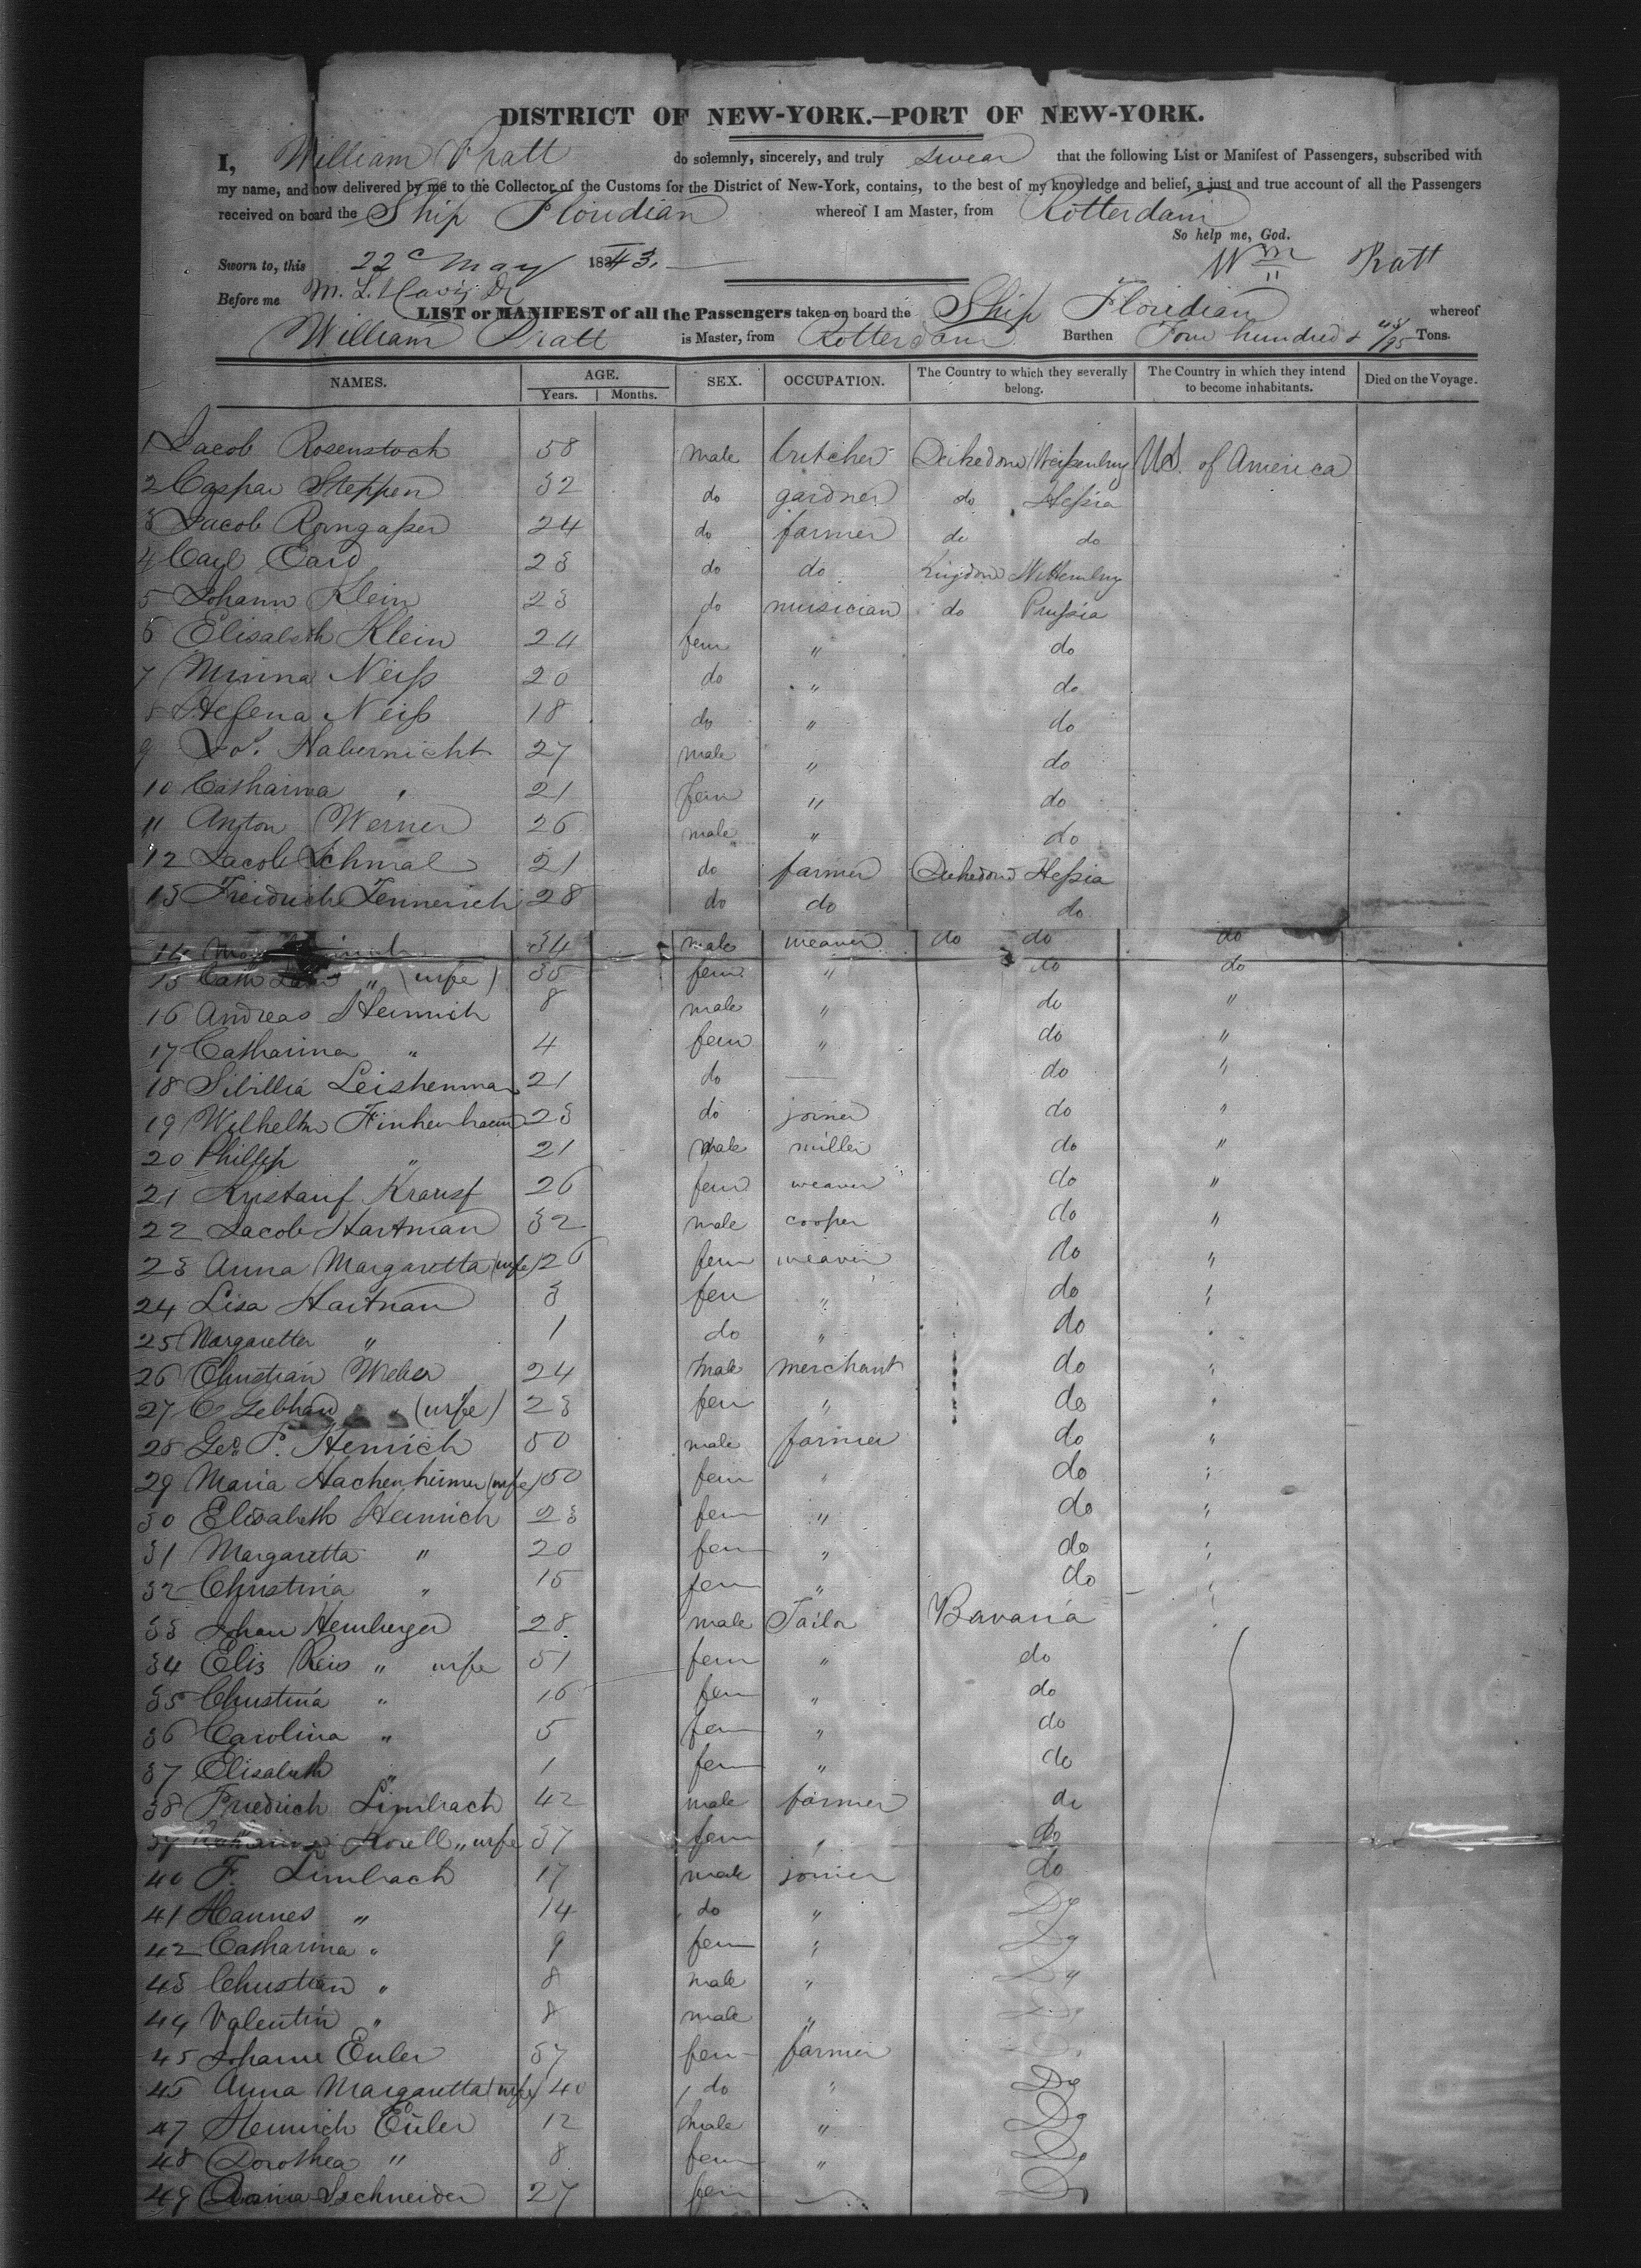 DISTRICT OF NEW-YORK.—PORT OF NEW-YORK.
I, William Pratt do solemnly, sincerely, and truly swear that the following List or Manifest of Passengers, subscribed with
my name, and now delivered by me to the Collector of the Customs for the District of New-York, contains, to the best of my knowledge and belief, a just and true account of all the Passengers
received on board the Ship Floridian whereof I am Master, from Rotterdam
So help me, God.
Sworn to, this 22d May 1843. Wm Pratt
Before me
LIST or MANIFEST of all the Passengers taken on board the Ship Floridian whereof
William Pratt is Master, from Rotterdam Burthen Four hundred & /95 Tons.
NAMES. AGE. SEX. OCCUPATION. The Country to which they severally belong. The Country in which they intend to become inhabitants. Died on the Voyage.
Years. Months.
1 Jacob Rosenstock 38 male butcher US. of America
2 Caspar Steppen 32 do gardner do Heßia
3 Jacob 24 do farmer do do
4 Carl 23 do do Kingdom
5 Johann Klein 23 do musician do Prußia
6 Elisabeth Klein 24 fem " do
7 Minna Neiß 20 do " do
8 Helena Neiß 18 do " do
9 Jo. Habernicht 27 male " do
10 Catharina " 21 fem " do
11 Anton Werner 26 male " do
12 Jacob Schmal 21 do farmer Heßia
13 Freidrich Jennerich 28 do do do
14 34 male weaver do do do
15 Cath " (wife) 35 fem " do do
16 Andreas Heinrich 8 male " do "
17 Catharina " 4 fem " do "
18 Sibillia Leishenman 21 do — do "
19 Wilhelm 23 do joiner do "
20 Phillip " 21 male miller do "
21 26 fem weaver do "
22 Jacob Hartman 32 male cooper do "
23 Anna Margaretta (wife) 26 fem weaver do "
24 Lisa Hartman 3 fem " do "
25 Margaretta " 1 do " do "
26 Christian Weber 24 male merchant do "
27 C Gebhard " (wife) 23 fem " do "
28 Geo. P. Henrich 50 male farmer do "
29 Maria Hachenheimer (wife) 50 fem " do "
30 Elisabeth Heinrich 23 fem " do "
31 Margaretta " 20 fem " do "
32 Christina " 15 fem " do "
33 Johan Hemberger 28 male Tailor Bavaria
34 Elis Reis " wife 31 fem " do
35 Christina " 16 fem " do
36 Carolina " 5 fem " do
37 Elisabeth " 1 fem " do
38 Friedrich Limbach 42 male farmer do
39 " wife 37 fem " Do
40 F. Limbach 17 male joiner do
41 Hannes " 14 do " Do
42 Catharina " 9 fem " Do
43 Christian " 8 male " Do
44 Valentin " 8 male " Do
45 Johann Euler 37 fem farmer
46 Anna Margaretta (wife) 40 do " Do
47 Heinrich Euler 12 male " Do
48 Dorothea " 8 fem " Do
49 Schneider 27 fem — Do